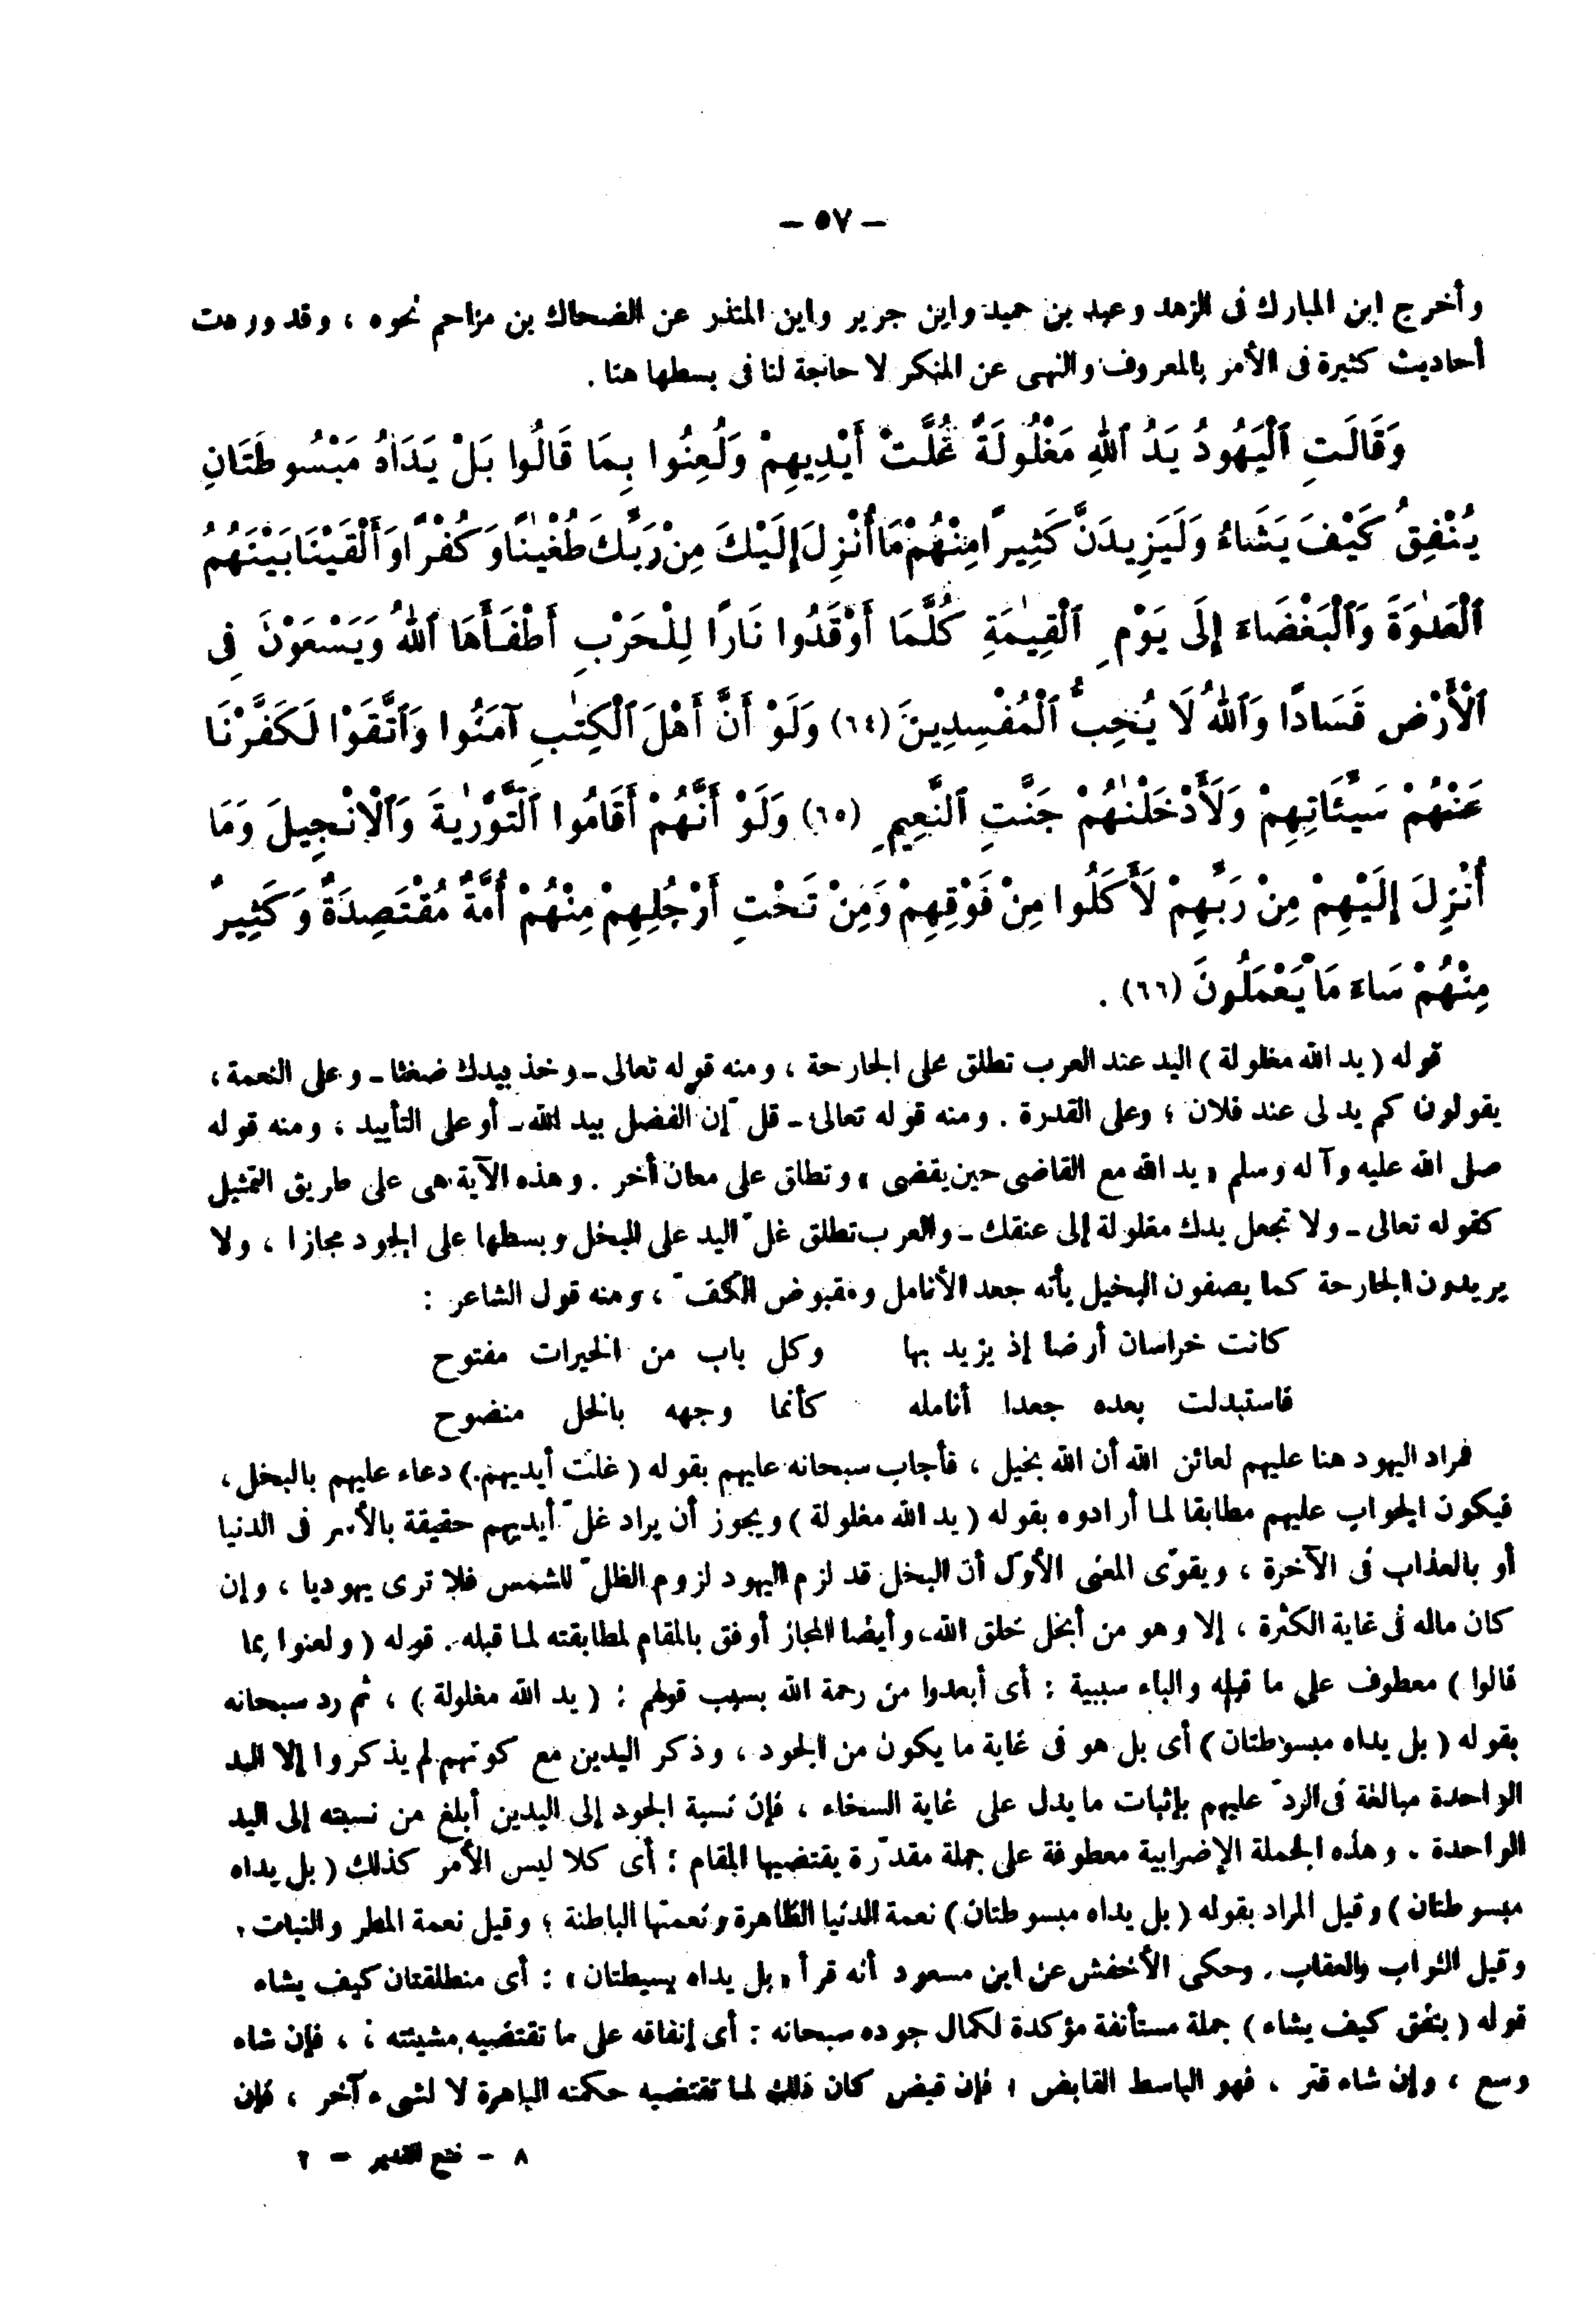 — ٥٧ —
وأخرج ابن المبارك فى الزهد وعبد بن حميد وابن جرير وابن المنذر عن الضحاك بن مزاحم نحوه ، وقد وردت
أحاديث كثيرة فى الأمر بالمعروف والنهى عن المنكر لا حاجة لنا فى بسطها هنا .
وَقَالَتِ ٱلْيَهُودُ يَدُ ٱللهِ مَغْلُولَةٌ غُلَّتْ أَيْدِيهِمْ وَلُعِنُوا بِمَا قَالُوا بَلْ يَدَاهُ مَبْسُوطَتَانِ
يُنْفِقُ كَيْفَ يَشَاءُ وَلَيَزِيدَنَّ كَثِيرًا مِنْهُمْ مَا أُنْزِلَ إِلَيْكَ مِنْ رَبِّكَ طُغْيٰنًا وَكُفْرًا وَأَلْقَيْنَا بَيْنَهُمُ
ٱلْعَدٰوَةَ وَٱلْبَغْضَاءَ إِلَى يَوْمِ ٱلْقِيٰمَةِ كُلَّمَا أَوْقَدُوا نَارًا لِلْحَرْبِ أَطْفَأَهَا ٱللهُ وَيَسْعَوْنَ فِى
ٱلْأَرْضِ فَسَادًا وَٱللهُ لَا يُحِبُّ ٱلْمُفْسِدِينَ (٦٤) وَلَوْ أَنَّ أَهْلَ ٱلْكِتٰبِ آمَنُوا وَٱتَّقَوْا لَكَفَّرْنَا
عَنْهُمْ سَيِّئَاتِهِمْ وَلَأَدْخَلْنٰهُمْ جَنّٰتِ ٱلنَّعِيمِ (٦٥) وَلَوْ أَنَّهُمْ أَقَامُوا ٱلتَّوْرٰيةَ وَٱلْإِنْجِيلَ وَمَا
أُنْزِلَ إِلَيْهِمْ مِنْ رَبِّهِمْ لَأَكَلُوا مِنْ فَوْقِهِمْ وَمِنْ تَحْتِ أَرْجُلِهِمْ مِنْهُمْ أُمَّةٌ مُقْتَصِدَةٌ وَكَثِيرٌ
مِنْهُمْ سَاءَ مَا يَعْمَلُونَ (٦٦) .
قوله ( يد الله مغلولة ) اليد عند العرب تطلق على الجارحة ، ومنه قوله تعالى ـ وخذ بيدك ضغثا ـ وعلى النعمة ،
يقولون كم يد لى عند فلان ؛ وعلى القدرة . ومنه قوله تعالى ـ قل إن الفضل بيد الله ـ أو على التأييد ، ومنه قوله
صلى الله عليه وآله وسلم « يد الله مع القاضى حين يقضى » وتطلق على معان أخر . وهذه الآية هى على طريق التمثيل
كقوله تعالى ـ ولا تجعل يدك مغلولة إلى عنقك ـ والعرب تطلق غلّ اليد على البخل وبسطها على الجود مجازا ، ولا
يريدون الجارحة كما يصفون البخيل بأنه جعد الأنامل ومقبوض الكفّ ، ومنه قول الشاعر :
كانت خراسان أرضا إذ يزيد بها وكل باب من الخيرات مفتوح
فاستبدلت بعده جعدا أنامله كأنما وجهه بالخل منضوح
فمراد اليهود هنا عليهم لعائن الله أن الله بخيل ، فأجاب سبحانه عليهم بقوله ( غلت أيديهم ) دعاء عليهم بالبخل ،
فيكون الجواب عليهم مطابقا لما أرادوه بقوله ( يد الله مغلولة ) ويجوز أن يراد غلّ أيديهم حقيقة بالأسر فى الدنيا
أو بالعذاب فى الآخرة ، ويقوّى المعنى الأوّل أن البخل قد لزم اليهود لزوم الظلّ للشمس فلا ترى يهوديا ، وإن
كان ماله فى غاية الكثرة ، إلا وهو من أبخل خلق الله ، وأيضا المجاز أوفق بالمقام لمطابقته لما قبله . قوله ( ولعنوا بما
قالوا ) معطوف على ما قبله والباء سببية : أى أبعدوا من رحمة الله بسبب قولهم : ( يد الله مغلولة ) ، ثم رد سبحانه
بقوله ( بل يداه مبسوطتان ) أى بل هو فى غاية ما يكون من الجود ، وذكر اليدين مع كونهم لم يذكروا إلا اليد
الواحدة مبالغة فى الردّ عليهم بإثبات ما يدل على غاية السخاء ، فإن نسبة الجود إلى اليدين أبلغ من نسبته إلى اليد
الواحدة . وهذه الجملة الإضرابية معطوفة على جملة مقدّرة يقتضيها المقام : أى كلا ليس الأمر كذلك ( بل يداه
مبسوطتان ) وقيل المراد بقوله ( بل يداه مبسوطتان ) نعمة الدنيا الظاهرة ونعمتها الباطنة ؛ وقيل نعمة المطر والنبات .
وقيل الثواب والعقاب . وحكى الأخفش عن ابن مسعود أنه قرأ « بل يداه بسيطتان » : أى منطلقتان كيف يشاء
قوله ( ينفق كيف يشاء ) جملة مستأنفة مؤكدة لكمال جوده سبحانه : أى إنفاقه على ما تقتضيه مشيئته ؛ ، فإن شاء
وسع ، وإن شاء قتر ، فهو الباسط القابض ؛ فإن قبض كان ذلك لما تقتضيه حكمته الباهرة لا لشىء آخر ، فإن
٨ — فتح القدير — ٢